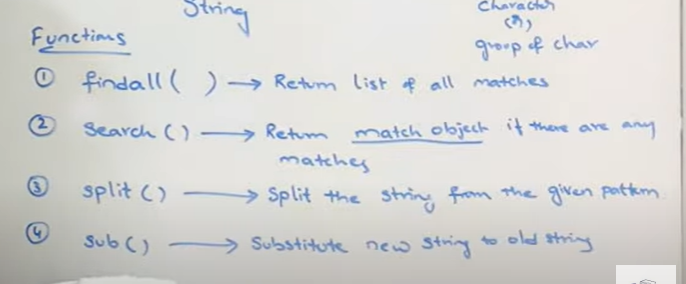 String
Character
(?)
group of char
Functions
① findall ( ) → Return list of all matches
② Search () → Return match object if there are any
matches
③ split () → Split the string from the given pattern
④ Sub () → Substitute new string to old string